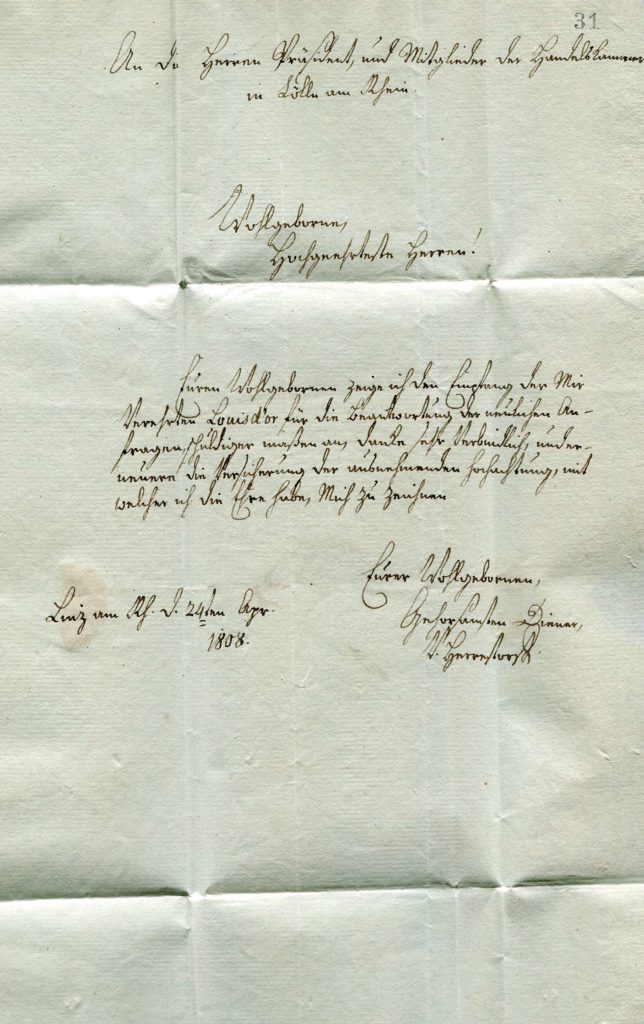 31
An die Herren Präsident, und Mitglieder der Handelskammer
in Cölln am Rhein.
Wohlgeborne,
Hochgeehrteste Herren!
Euren Wohlgebornen zeige ich den Empfang der Mir
Verehrten Louisd'or für die Beantwortung der neulichen An-
fragen, schuldiger maßen an, danke sehr Verbindlich, und er-
neuere die Versicherung der ausnehmenden Hochachtung, mit
welcher ich die Ehre habe, Mich zu zeichnen
Eurer Wohlgebornen,
Linz am Rh. d. 24ten Apr.
1808.
Gehorsamsten Diener,
V. Herrestorff.